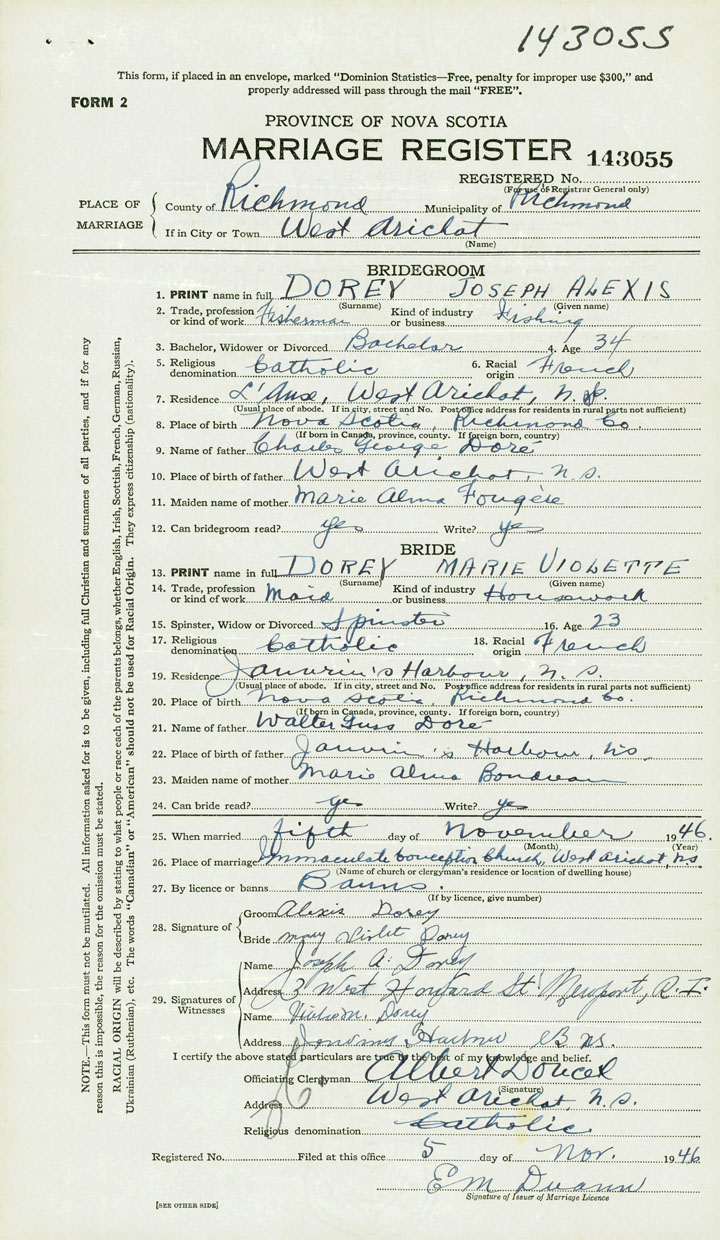 143055
This form, if placed in an envelope, marked "Dominion Statistics—Free, penalty for improper use $300," and
properly addressed will pass through the mail "FREE".
FORM 2
PROVINCE OF NOVA SCOTIA
MARRIAGE REGISTER 143055
REGISTERED No.
(For use of Registrar General only)
PLACE OF MARRIAGE
County of Richmond Municipality of Richmond
If in City or Town West Arichat
(Name)
BRIDEGROOM
1. PRINT name in full DOREY JOSEPH ALEXIS
(Surname) (Given name)
2. Trade, profession or kind of work Fisherman Kind of industry or business Fishing
3. Bachelor, Widower or Divorced Bachelor 4. Age 34
5. Religious denomination Catholic 6. Racial origin French
7. Residence L'Anse, West Arichat, N.S.
(Usual place of abode. If in city, street and No. Post office address for residents in rural parts not sufficient)
8. Place of birth Nova Scotia, Richmond Co.
(If born in Canada, province, county. If foreign born, country)
9. Name of father Charles George Doré
10. Place of birth of father West Arichat, N.S.
11. Maiden name of mother Marie Alma Fougère
12. Can bridegroom read? yes Write? yes
BRIDE
13. PRINT name in full DOREY MARIE VIOLETTE
(Surname) (Given name)
14. Trade, profession or kind of work Maid Kind of industry or business Housework
15. Spinster, Widow or Divorced Spinster 16. Age 23
17. Religious denomination Catholic 18. Racial origin French
19. Residence Janvrin's Harbour, N.S.
(Usual place of abode. If in city, street and No. Post office address for residents in rural parts not sufficient)
20. Place of birth Nova Scotia, Richmond Co.
(If born in Canada, province, county. If foreign born, country)
21. Name of father Walter Doré
22. Place of birth of father Janvrin's Harbour, N.S.
23. Maiden name of mother Marie Alma
24. Can bride read? yes Write? yes
25. When married fifth day of November 1946.
(Month) (Year)
26. Place of marriage Immaculate Conception Church, West Arichat, N.S.
(Name of church or clergyman's residence or location of dwelling house)
27. By licence or banns Banns.
(If by licence, give number)
28. Signature of
Groom Alexis Dorey
Bride Mary Violet Dorey
29. Signatures of Witnesses
Name Joseph A. Dorey
Address 3 West Howard St. Newport, R.I.
Name Dorey
Address Harbour N.S.
I certify the above stated particulars are true to the best of my knowledge and belief.
Officiating Clergyman Albert Doucet
(Signature)
Address West Arichat, N.S.
Religious denomination Catholic
Registered No. Filed at this office 5 day of Nov. 1946
E M
Signature of Issuer of Marriage Licence
[SEE OTHER SIDE]
NOTE.—This form must not be mutilated. All information asked for is to be given, including full Christian and surnames of all parties, and if for any
reason this is impossible, the reason for the omission must be stated.
RACIAL ORIGIN will be described by stating to what people or race each of the parents belongs, whether English, Irish, Scottish, French, German, Russian,
Ukrainian (Ruthenian), etc. The words "Canadian" or "American" should not be used for Racial Origin. They express citizenship (nationality).